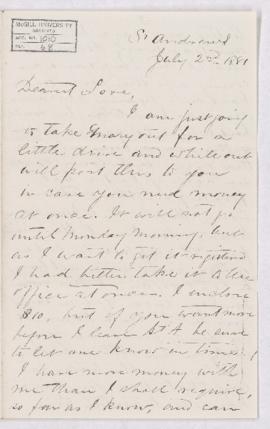 McGILL UNIVERSITY
ARCHIVES
ACC. NO. 1010
REF. 68
St Andrews
July 2nd 1881
Dearest Love,
I am just going
to take Mary out for a
little drive and while out
will post this to you
in case you need money
at once. It will not go
until Monday morning, but
as I want to get it registered
I had better take it to the
office at once. I enclose
$10, but if you want more
before I leave St A be sure
to let me know in time.
I have more money with
me than I shall require,
so far as I know, and can